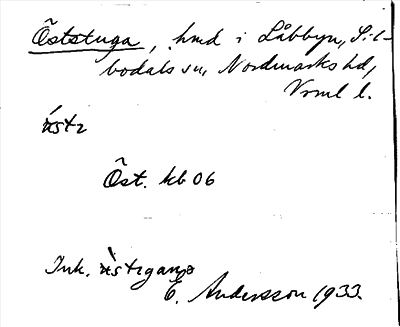 Öststuga, hmd i Låbbyn, Sil-
bodals sn, Nordmarks hd,
Vrml l.
östɩ
Öst. kb 06
Ink. östɩganɷ
E. Andersson 1933.